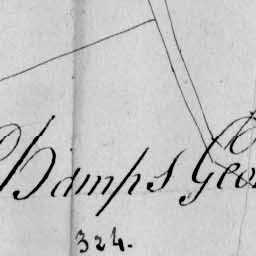 Champs Geo
324.